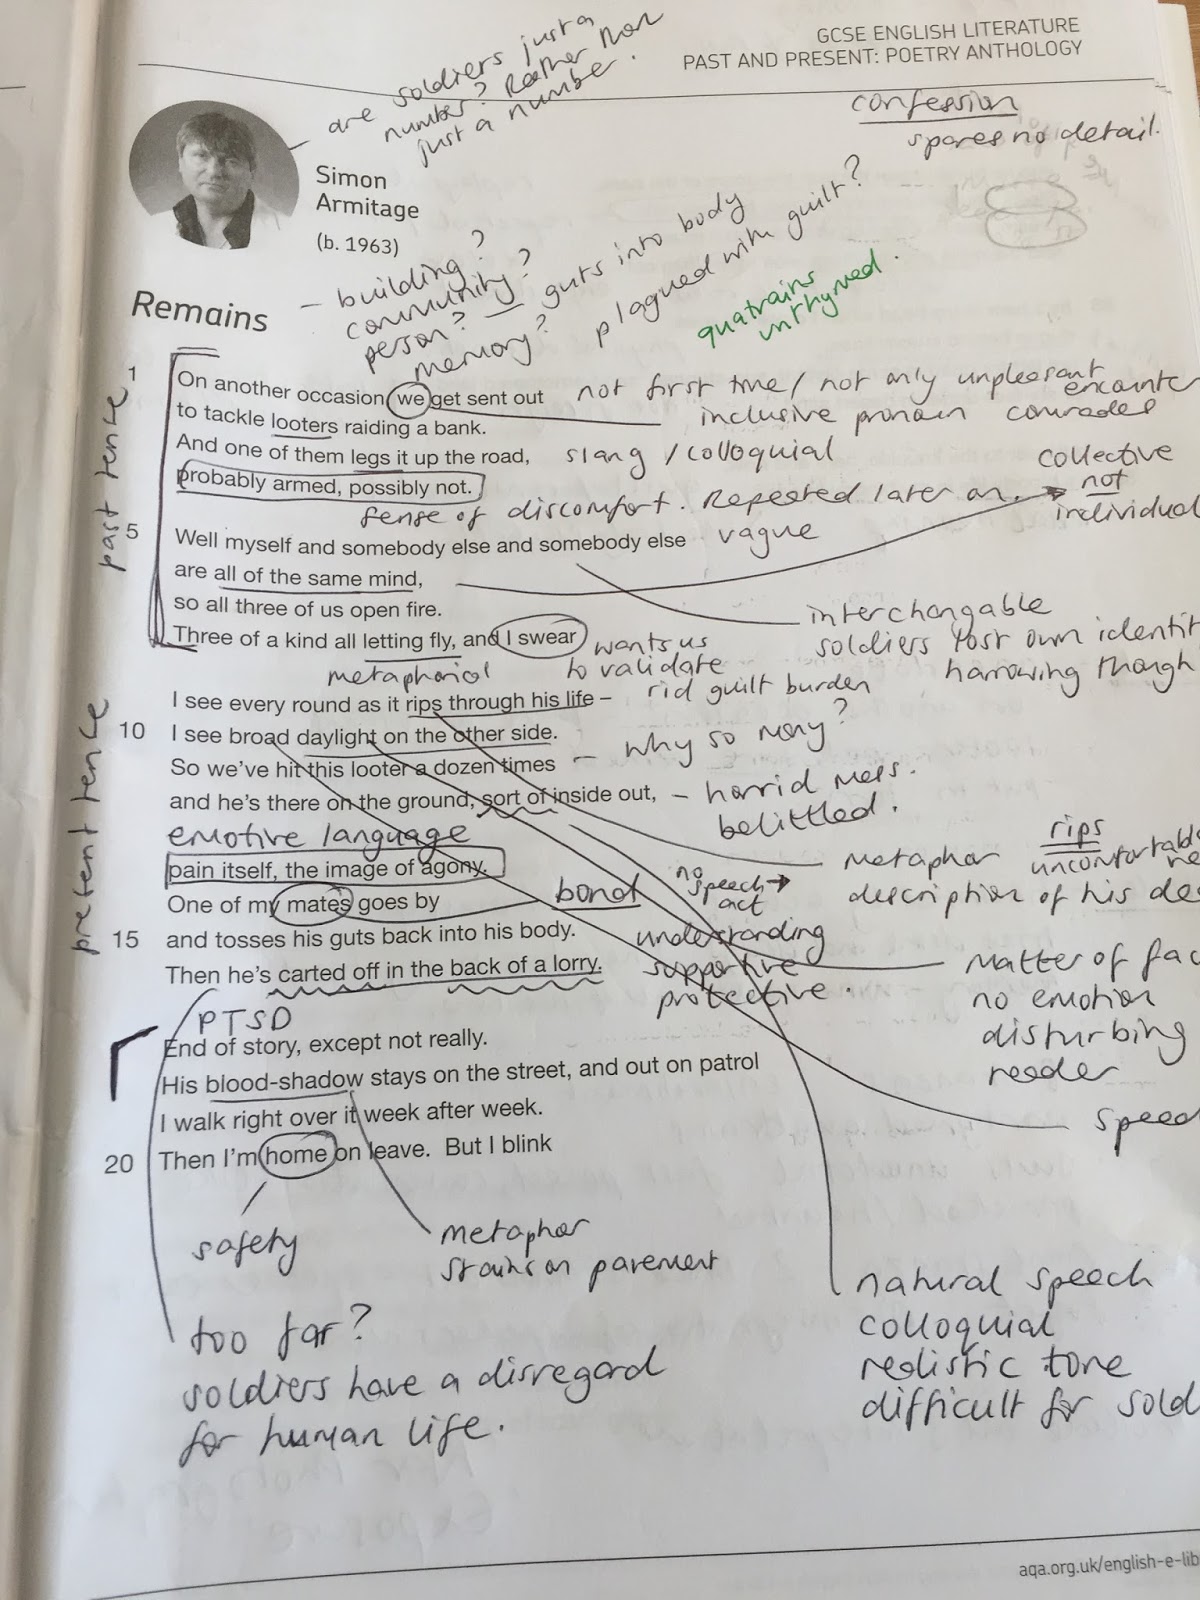 GCSE ENGLISH LITERATURE
PAST AND PRESENT: POETRY ANTHOLOGY
are soldiers just a
number? Rather than
just a number.
confession
spares no detail.
Simon
Armitage
(b. 1963)
Remains
– building?
community?
person? — guts into body
memory?
plagued with guilt?
quatrains
unrhymed.
past tence
1
On another occasion we get sent out
not first time / not only unpleasant
encounter
to tackle looters raiding a bank.
inclusive pronoun comrades
And one of them legs it up the road,
slang / colloquial
probably armed, possibly not.
sense of discomfort. Repeated later on.
collective
not
individual
5
Well myself and somebody else and somebody else
vague
are all of the same mind,
so all three of us open fire.
interchangable
soldiers lost own identit
harrowing though
Three of a kind all letting fly, and I swear
wants us
to validate
rid guilt burden
metaphorical
pretent tence
I see every round as it rips through his life –
10
I see broad daylight on the other side.
So we've hit this looter a dozen times
– why so many?
and he's there on the ground, sort of inside out,
– horrid mess.
belittled.
emotive language
pain itself, the image of agony.
metaphor
description of his
rips
uncomfortable
One of my mates goes by
bond
no
speech
act
understanding
supportive
protective.
15
and tosses his guts back into his body.
Then he's carted off in the back of a lorry.
matter of fac
no emotion
disturbing
reader
PTSD
End of story, except not really.
His blood-shadow stays on the street, and out on patrol
I walk right over it week after week.
speed
20
Then I'm home on leave. But I blink
safety
metaphor
stains on pavement
too far?
soldiers have a disregard
for human life.
natural speech
colloquial
realistic tone
difficult for sold
aqa.org.uk/english-e-lib